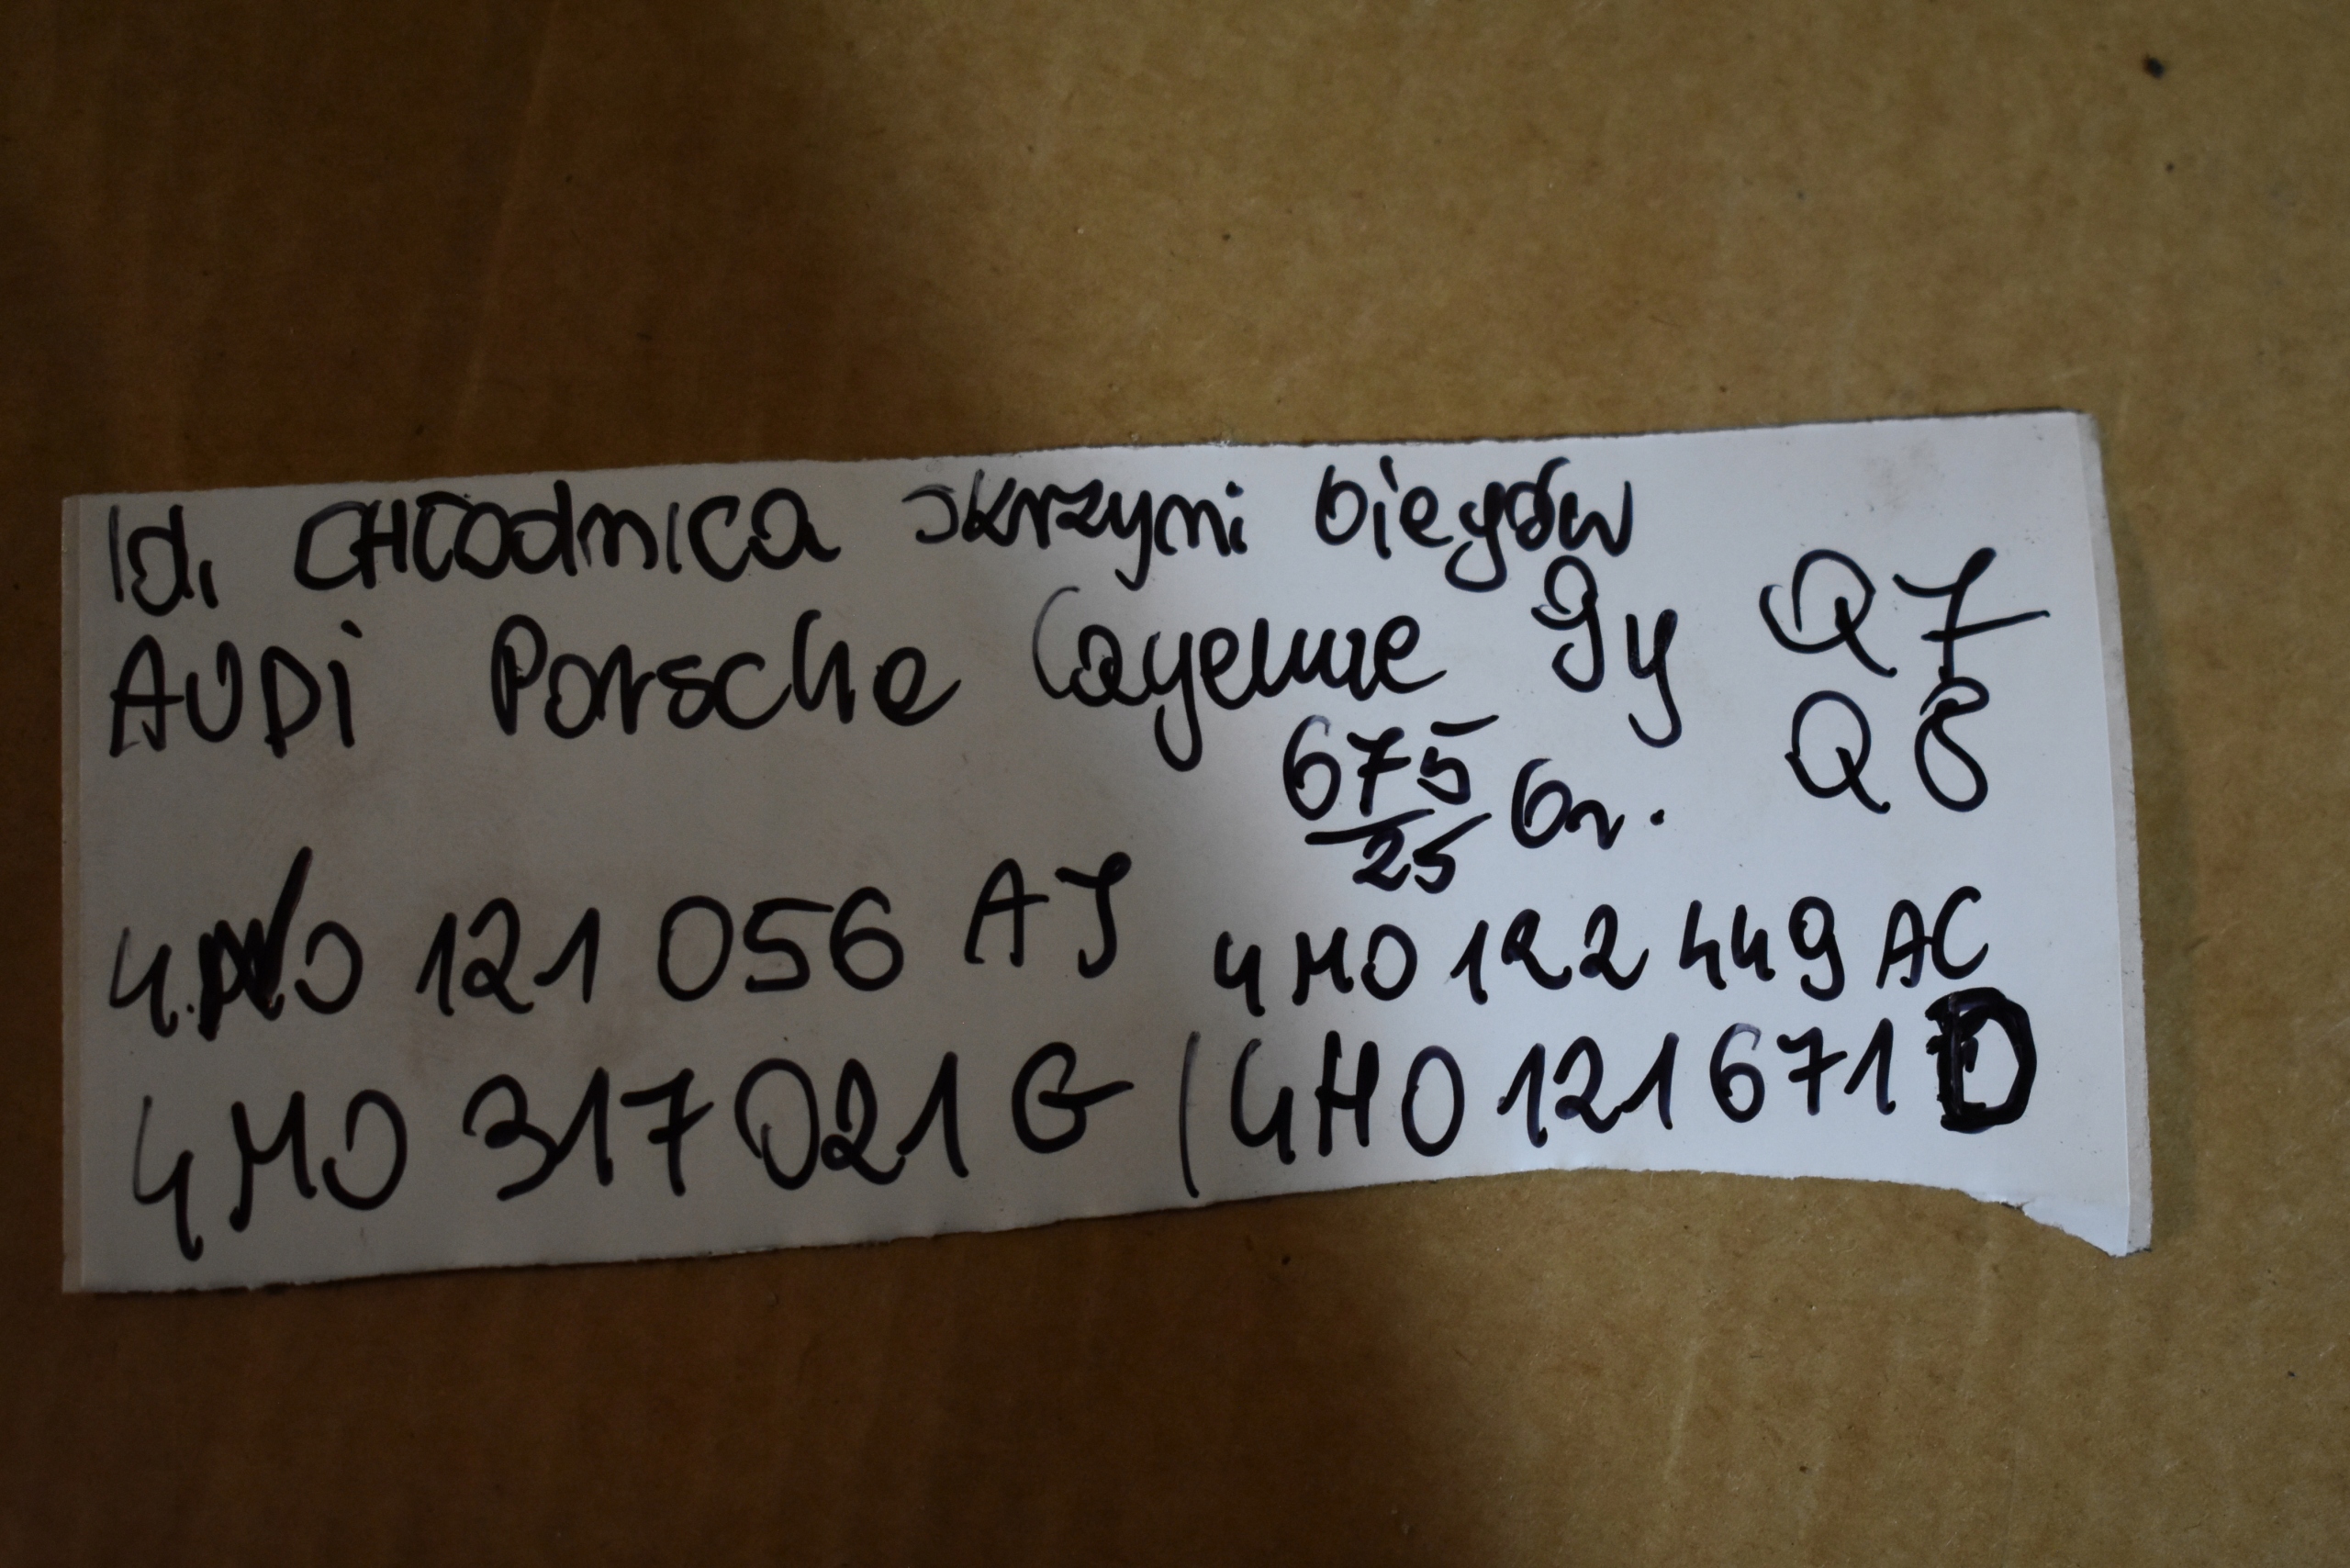 Id. CHŁodnica skrzyni biegów
AUDi Porsche Cayenne 9y Q7
675/25 Gr. Q8
4M0 121 056 AJ 4M0 122 449 AC
4M0 317 021 G / 4H0 121 671 D